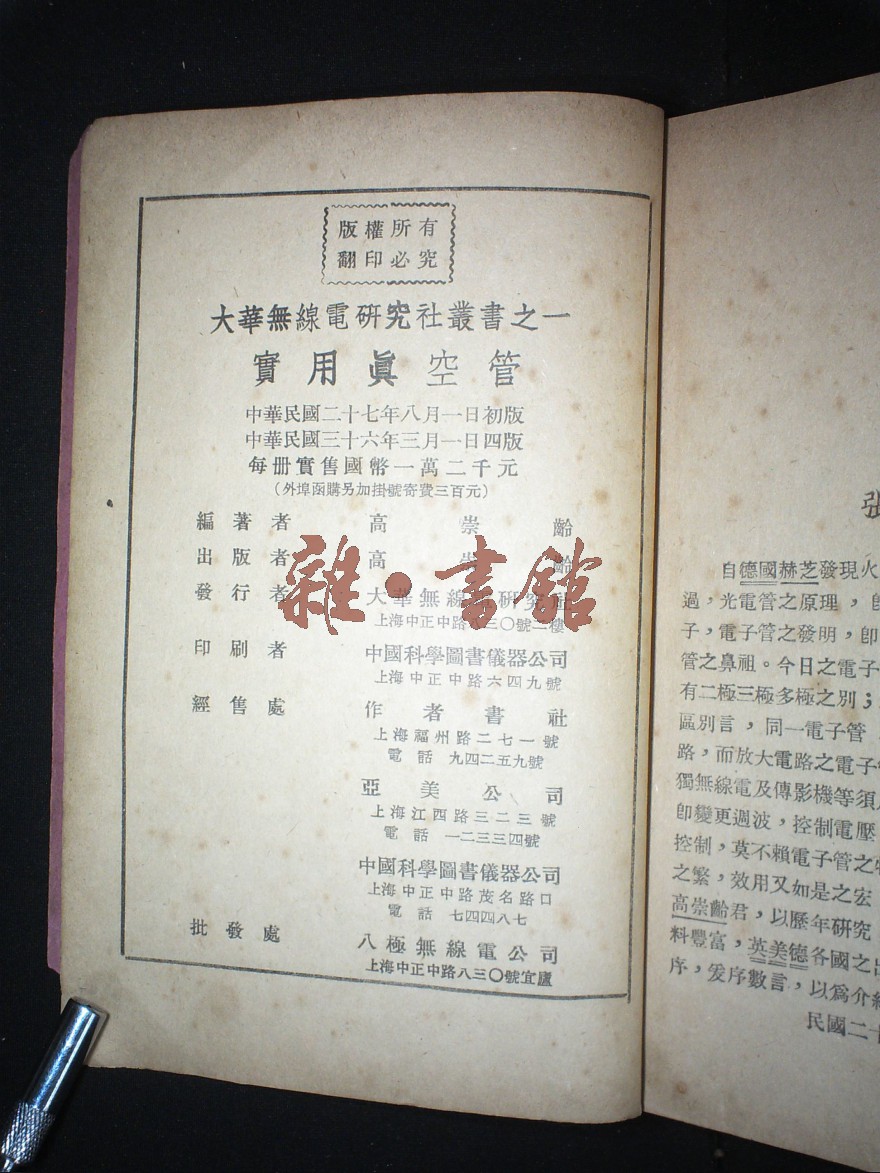 版權所有
翻印必究
大華無線電研究社叢書之一
實用眞空管
中華民國二十七年八月一日初版
中華民國三十六年三月一日四版
每册實售國幣一萬二千元
(外埠函購另加掛號寄費三百元)
編著者 高崇齡
出版者 高崇齡
發行者 大華無線電研究社
上海中正中路八三〇號二樓
印刷者 中國科學圖書儀器公司
上海中正中路六四九號
經售處 作者書社
上海福州路二七一號
電話 九四二五九號
亞美公司
上海江西路三二三號
電話 一二三三四號
中國科學圖書儀器公司
上海中正中路茂名路口
電話 七四四八七
批發處 八極無線電公司
上海中正中路八三〇號宜廬
雜·書館
張
自德國赫芝發現火
過,光電管之原理,
子,電子管之發明,卽
管之鼻祖。今日之電子
有二極三極多極之別;
區別言,同一電子管
路,而放大電路之電子
獨無線電及傳影機等須
卽變更週波,控制電壓
控制,莫不賴電子管之
之繁,效用又如是之宏
高崇齡君,以歷年研究
料豐富,英美德各國之出
序,爰序數言,以爲介
民國二十